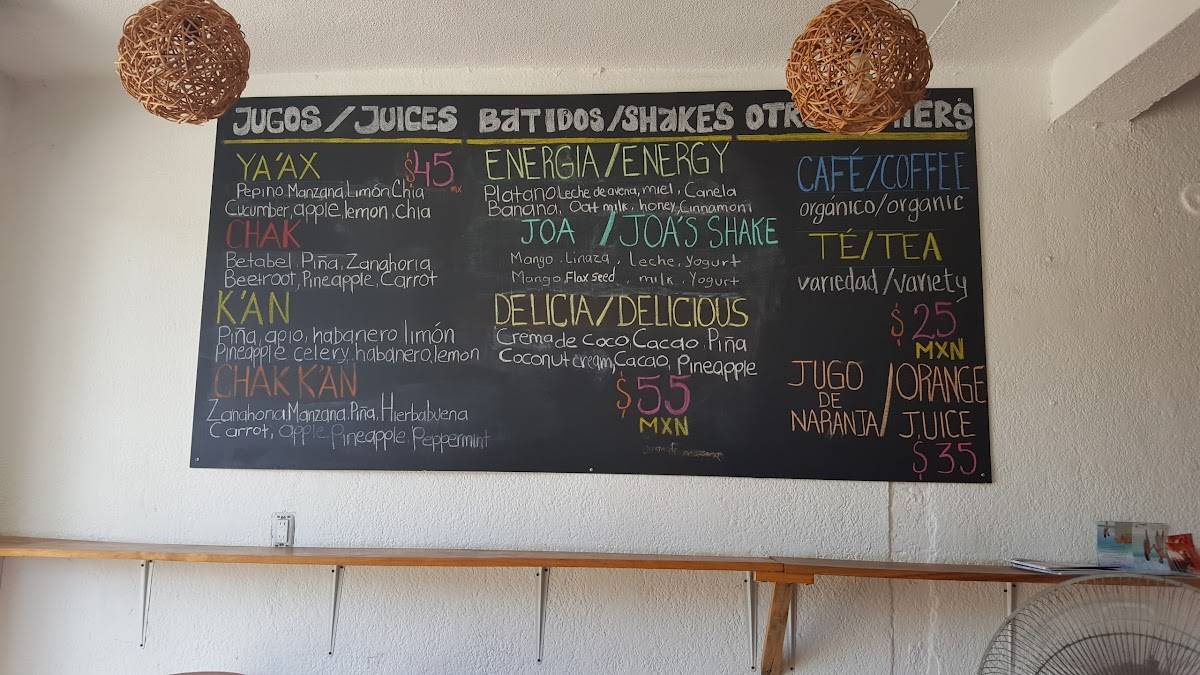 JUGOS / JUICES
YA'AX $45
mx
Pepino Manzana, Limón, Chia
Cucumber, apple, lemon, Chia
CHAK
Betabel, Piña, Zanahoria
Beetroot, Pineapple, Carrot
K'AN
Piña, apio, habanero limón
Pineapple celery, habanero, lemon
CHAK K'AN
Zanahoria, Manzana, Piña, Hierbabuena
Carrot, apple, pineapple, Peppermint
BATIDOS / SHAKES
ENERGIA / ENERGY
Platano Leche de avena, miel, Canela
Banana, Oat milk, honey, Cinnamom
JOA / JOA'S SHAKE
Mango, Linaza, Leche, Yogurt
Mango, Flax seed, milk, Yogurt
DELICIA / DELICIOUS
Crema de coco, Cacao, Piña
Coconut cream, Cacao, Pineapple
$55
MXN
CAFÉ / COFFEE
orgánico / organic
TÉ / TEA
variedad / variety
$25
MXN
JUGO DE NARANJA / ORANGE JUICE
$35